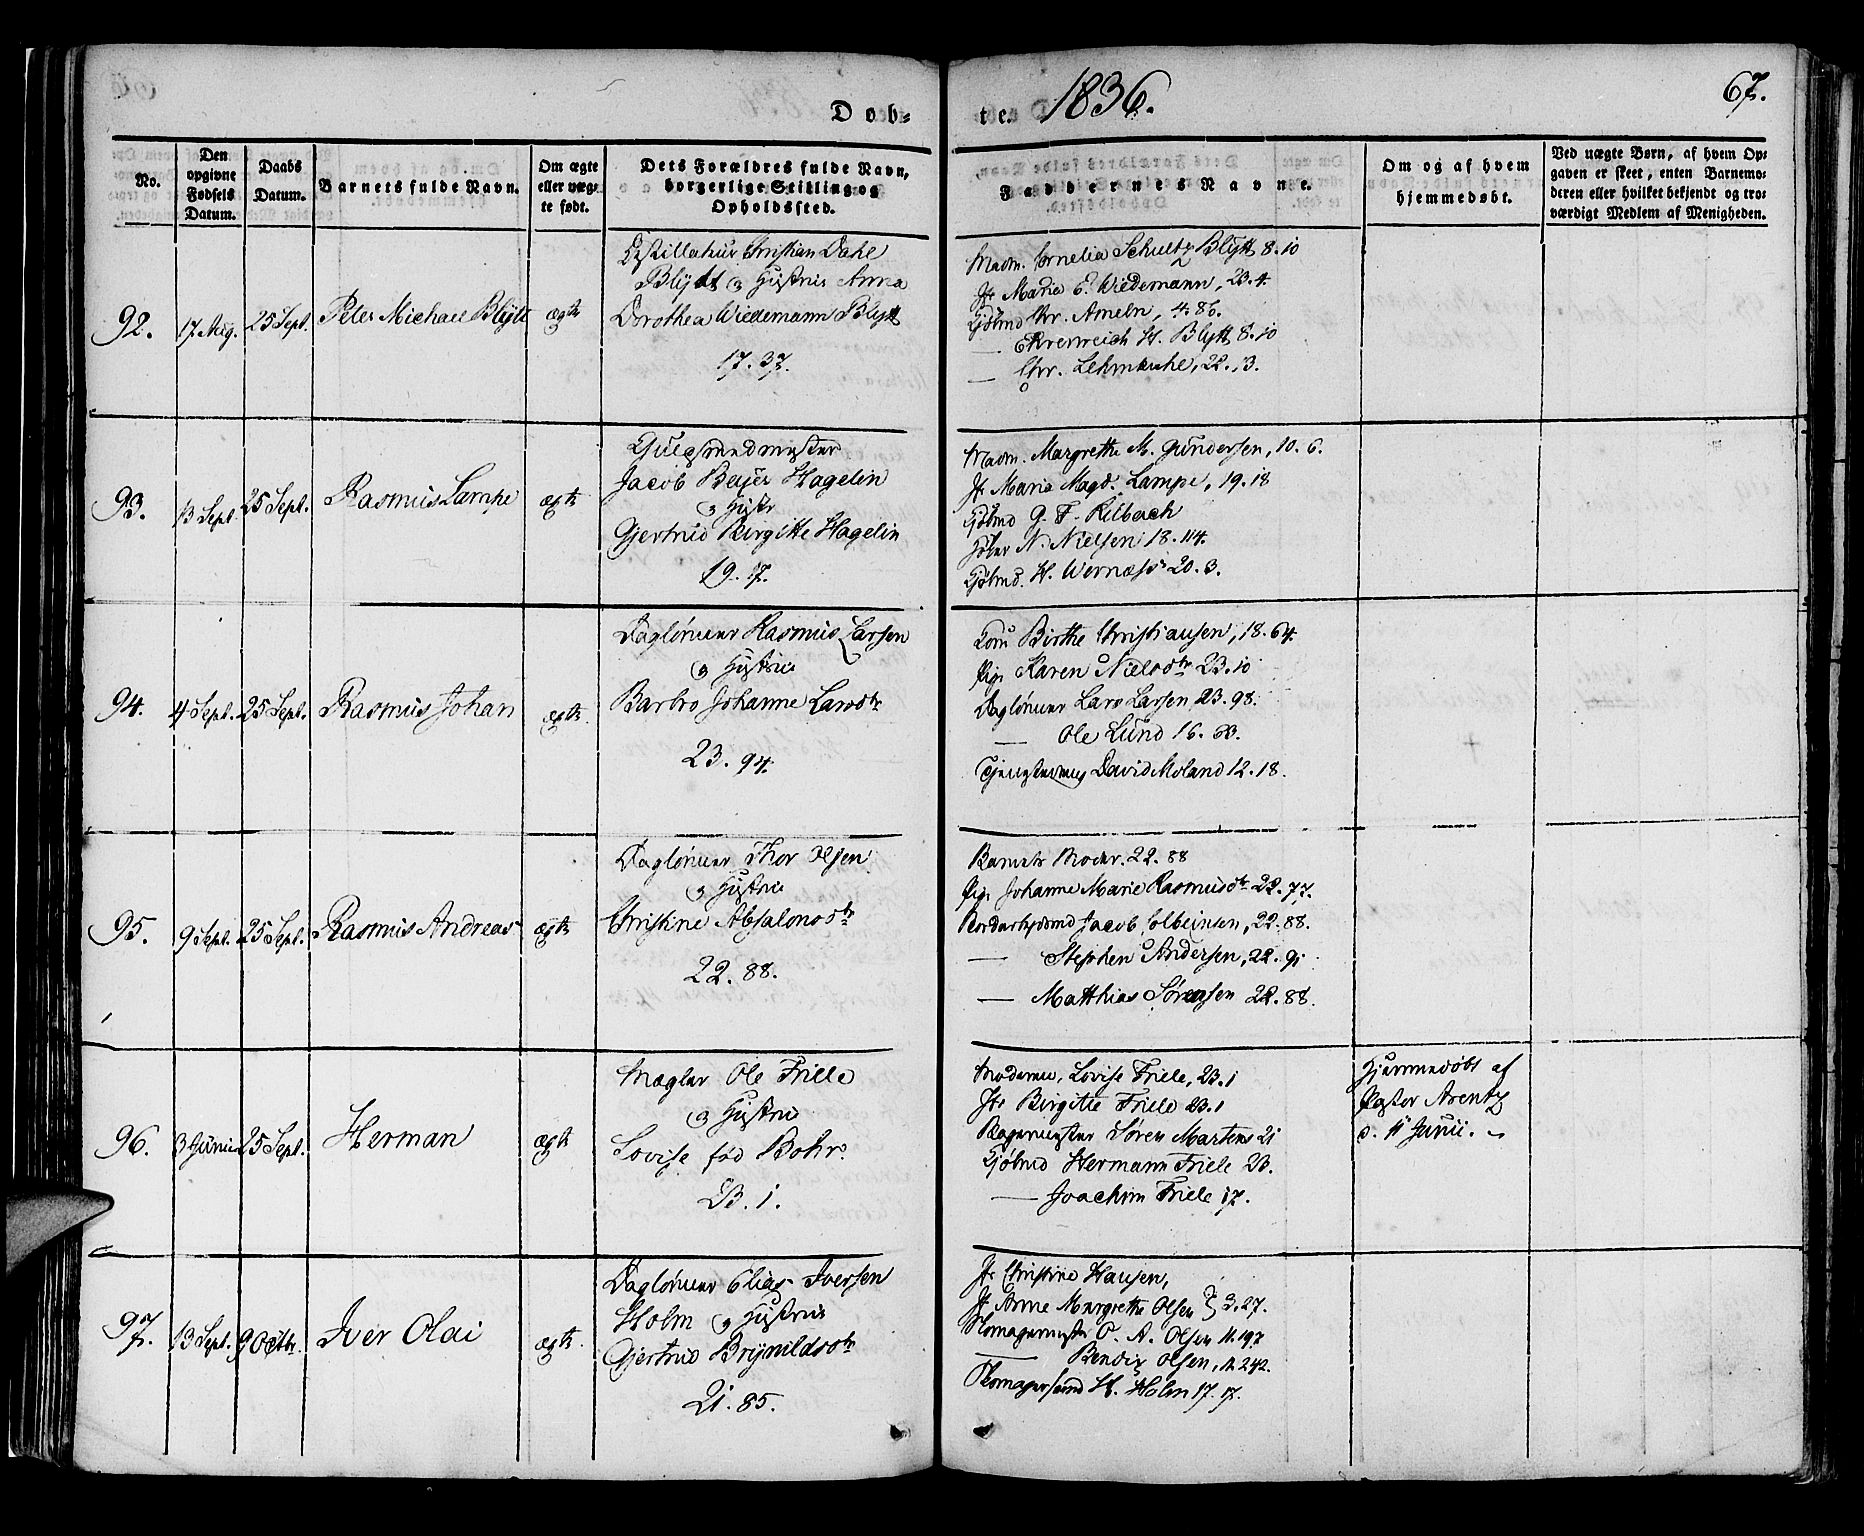 Døb-
te. 1836. 67.
No.
Den opgivne Fødsels Datum.
Daabs Datum.
Barnets fulde Navn.
Om ægte eller uæg-te født.
Dets Forældres fulde Navn, borgerlige Stilling og Opholdssted.
Faddernes Navne.
Om og af hvem hjemmedøbt.
Ved uægte Børn, af hvem Op-
gaven er skeet, enten Barnemo-
deren eller hvilket bekjendt og tro-
værdigt Medlem af Menigheden.
92. 17 Aug. 25 Sept. Peter Michael Blÿtt ægte
Destillateur Christian Dahl
Blÿtt og Hustrue Anna
Dorothea Wiedemann Blÿtt
17. 37.
Madm. Cornelia Schultz Blÿtt 8.10
Jfr Maria E. Wiedemann, 23.4.
Kjøbmd Chr. Ameln, 4.86.
— Ehrenreich H. Blÿtt 8.10
— Chr. Lehmkuhl, 22.,3.
93. 13 Sept. 25 Sept. Rasmus Lampe ægte
Guldsmedmester
Jacob Beÿer Hagelin
og Hustr
Gjertrud Birgitte Hagelin
19. 17.
Madm. Margrethe M. Gundersen, 10. 6.
Jfr Maria Magd. Lampe, 19.18
Kjøbmd G. F. Kilbach
N. Nielsen 18.114.
Kjøbmd. H. Wernæss 20. 3.
94. 4 Sept. 25 Sept. Rasmus Johan ægte
Daglønner Rasmus Larsen
og Hustrue
Barbro Johanne Larsdtr
23. 94.
Kone Birthe Christiansen, 18.64.
Pige Karen Nielsdtr 23.10
Daglønner Lars Larsen 23.98.
— Ole Lund 16. 63.
David Moland 12.18.
95. 9 Sept. 25 Sept. Rasmus Andreas ægte
Daglønner Thor Olsen
og Hustrue
Christine Absalonsdtr
22. 88.
Barnets Moder. 22. 88
Pige Johanne Marie Rasmusdtr 22.77.
Jacob Colbeinsen, 22.88.
— Stephen Andersen, 22.91
— Matthias Sørensen 22.88.
96. 3 Junii 25 Sept. Herman ægte
Mægler Ole Friele
og Hustrue
Lovise fød Bohr.
23. 1.
Moderen, Lovise Friele, 23.1
Jfr Birgitte Friele 23.1
Bagermester Søren Martens 21
Kjøbmd Hermann Friele 23.
— Joachim Friele 17.
Hjemmedøbt af
Pastor Arentz
d. 11 Junii.
97. 13 Sept. 9 Octbr. Iver Olai ægte
Daglønner Elias Iversen
Holm og Hustrue
Gjertrud Brÿnildsdtr
21. 85.
Jfr Christine Hansen,
Jfr Anne Margrethe Olsen } 3.27.
Skomagermester O. A. Olsen 11.197
— Bendix Olsen, 11.242.
Skomagersvend H. Holm 17.17.